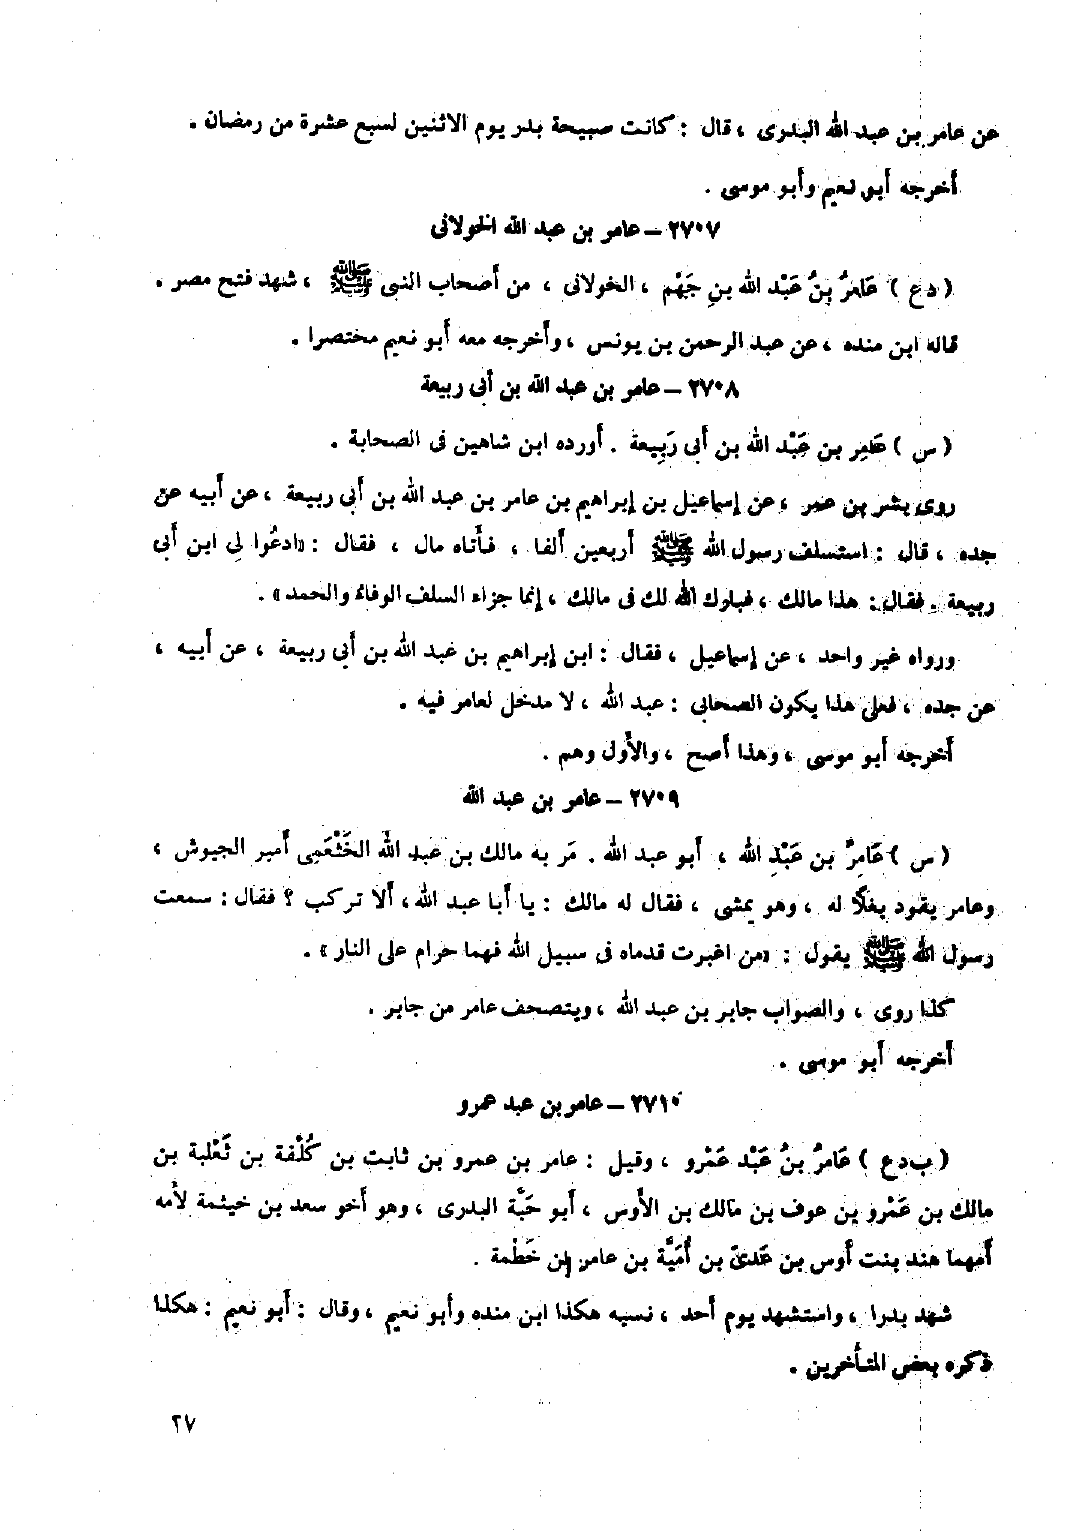 عن عامر بن عبد الله البدرى ، قال : كانت صبيحة بدر يوم الاثنين لسبع عشرة من رمضان .
أخرجه أبو نعيم وأبو موسى .
٢٧٠٧ – عامر بن عبد الله الخولانى
( دع ) عَامِرُ بنُ عَبْد الله بنِ جَهْم ، الخولانى ، من أصحاب النبى ﷺ ، شهد فتح مصر .
قاله ابن منده ، عن عبد الرحمن بن يونس ، وأخرجه معه أبو نعيم مختصرا .
٢٧٠٨ – عامر بن عبد الله بن أبى ربيعة
( س ) عَامِر بن عَبْد الله بن أبى رَبِيعة . أورده ابن شاهين فى الصحابة .
روى بشر بن عمر ، عن إسماعيل بن إبراهيم بن عامر بن عبد الله بن أبى ربيعة ، عن أبيه عن
جده ، قال : استسلف رسول الله ﷺ أربعين ألفا ، فأتاه مال ، فقال : «ادعُوا لِى ابن أبى
ربيعة . فقال : هذا مالك ، فبارك الله لك فى مالك ، إنما جزاء السلف الوفاء والحمد» .
ورواه غير واحد ، عن إسماعيل ، فقال : ابن إبراهيم بن عبد الله بن أبى ربيعة ، عن أبيه ،
عن جده ، فعلى هذا يكون الصحابى : عبد الله ، لا مدخل لعامر فيه .
أخرجه أبو موسى ، وهذا أصح ، والأول وهم .
٢٧٠٩ – عامر بن عبد الله
( س ) عَامِرُ بن عَبْدِ الله ، أبو عبد الله . مَر به مالك بن عبد الله الخَثْعَمِى أمير الجيوش ،
وعامر يقود بغلًا له ، وهو يمشى ، فقال له مالك : يا أبا عبد الله ، ألا تركب ؟ فقال : سمعت
رسول الله ﷺ يقول : «من اغبرت قدماه فى سبيل الله فهما حرام على النار» .
كذا روى ، والصواب جابر بن عبد الله ، ويتصحف عامر من جابر .
أخرجه أبو موسى .
٢٧١٠ – عامر بن عبد عمرو
( ب د ع ) عَامرُ بنُ عَبْد عَمْرو ، وقيل : عامر بن عمرو بن ثابت بن كُلْفة بن ثَعْلبة بن
مالك بن عَمْرو بن عوف بن مالك بن الأوس ، أبو حَبَّة البدرى ، وهو أخو سعد بن خيثمة لأمه
أمهما هند بنت أوس بن عَدىّ بن أُمَيَّة بن عامر بن خَطْمة .
شهد بدرا ، واستشهد يوم أحد ، نسبه هكذا ابن منده وأبو نعيم ، وقال : أبو نعيم : هكذا
ذكره بعض المتأخرين .
٢٧